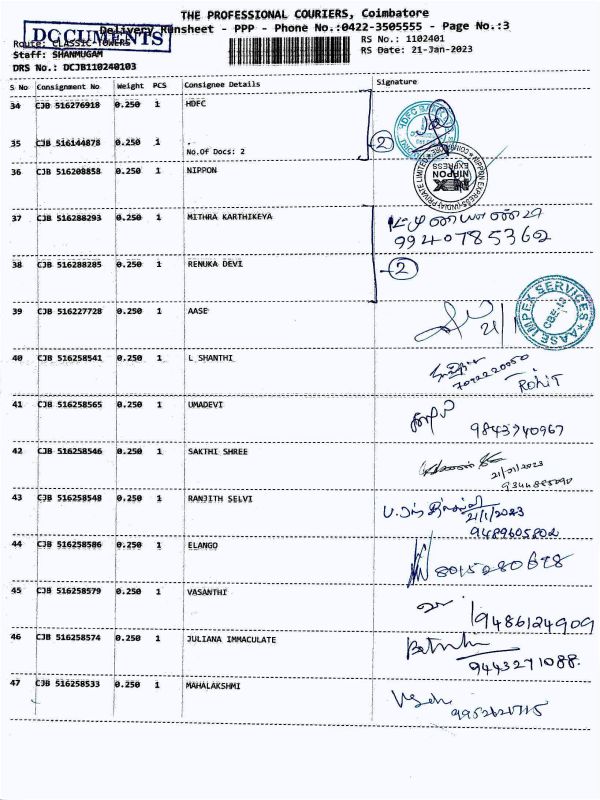 THE PROFESSIONAL COURIERS, Coimbatore
Delivery Runsheet - PPP - Phone No.:0422-3505555 - Page No.:3
DOCUMENTS
Route: CLASSIC-TOWERS
RS No.: 1102401
Staff: SHANMUGAM
RS Date: 21-Jan-2023
DRS No.: DCJB110240103
S No Consignment No Weight PCS Consignee Details Signature
34 CJB 516276918 0.250 1 HDFC
35 CJB 516144878 0.250 1 .
No.Of Docs: 2
2
36 CJB 516208858 0.250 1 NIPPON
NIPPON EXPRESS
37 CJB 516288293 0.250 1 MITHRA KARTHIKEYA
9940785362
38 CJB 516288285 0.250 1 RENUKA DEVI
2
39 CJB 516227728 0.250 1 AASE
21/1
AASE IMPEX SERVICES
CBE-18
40 CJB 516258541 0.250 1 L SHANTHI
ROHIT
41 CJB 516258565 0.250 1 UMADEVI
9843740967
42 CJB 516258546 0.250 1 SAKTHI SHREE
21/01/2023
43 CJB 516258548 0.250 1 RANJITH SELVI
21/1/2023
9489605802
44 CJB 516258586 0.250 1 ELANGO
8015280678
45 CJB 516258579 0.250 1 VASANTHI
9486124909
46 CJB 516258574 0.250 1 JULIANA IMMACULATE
9443271088.
47 CJB 516258533 0.250 1 MAHALAKSHMI